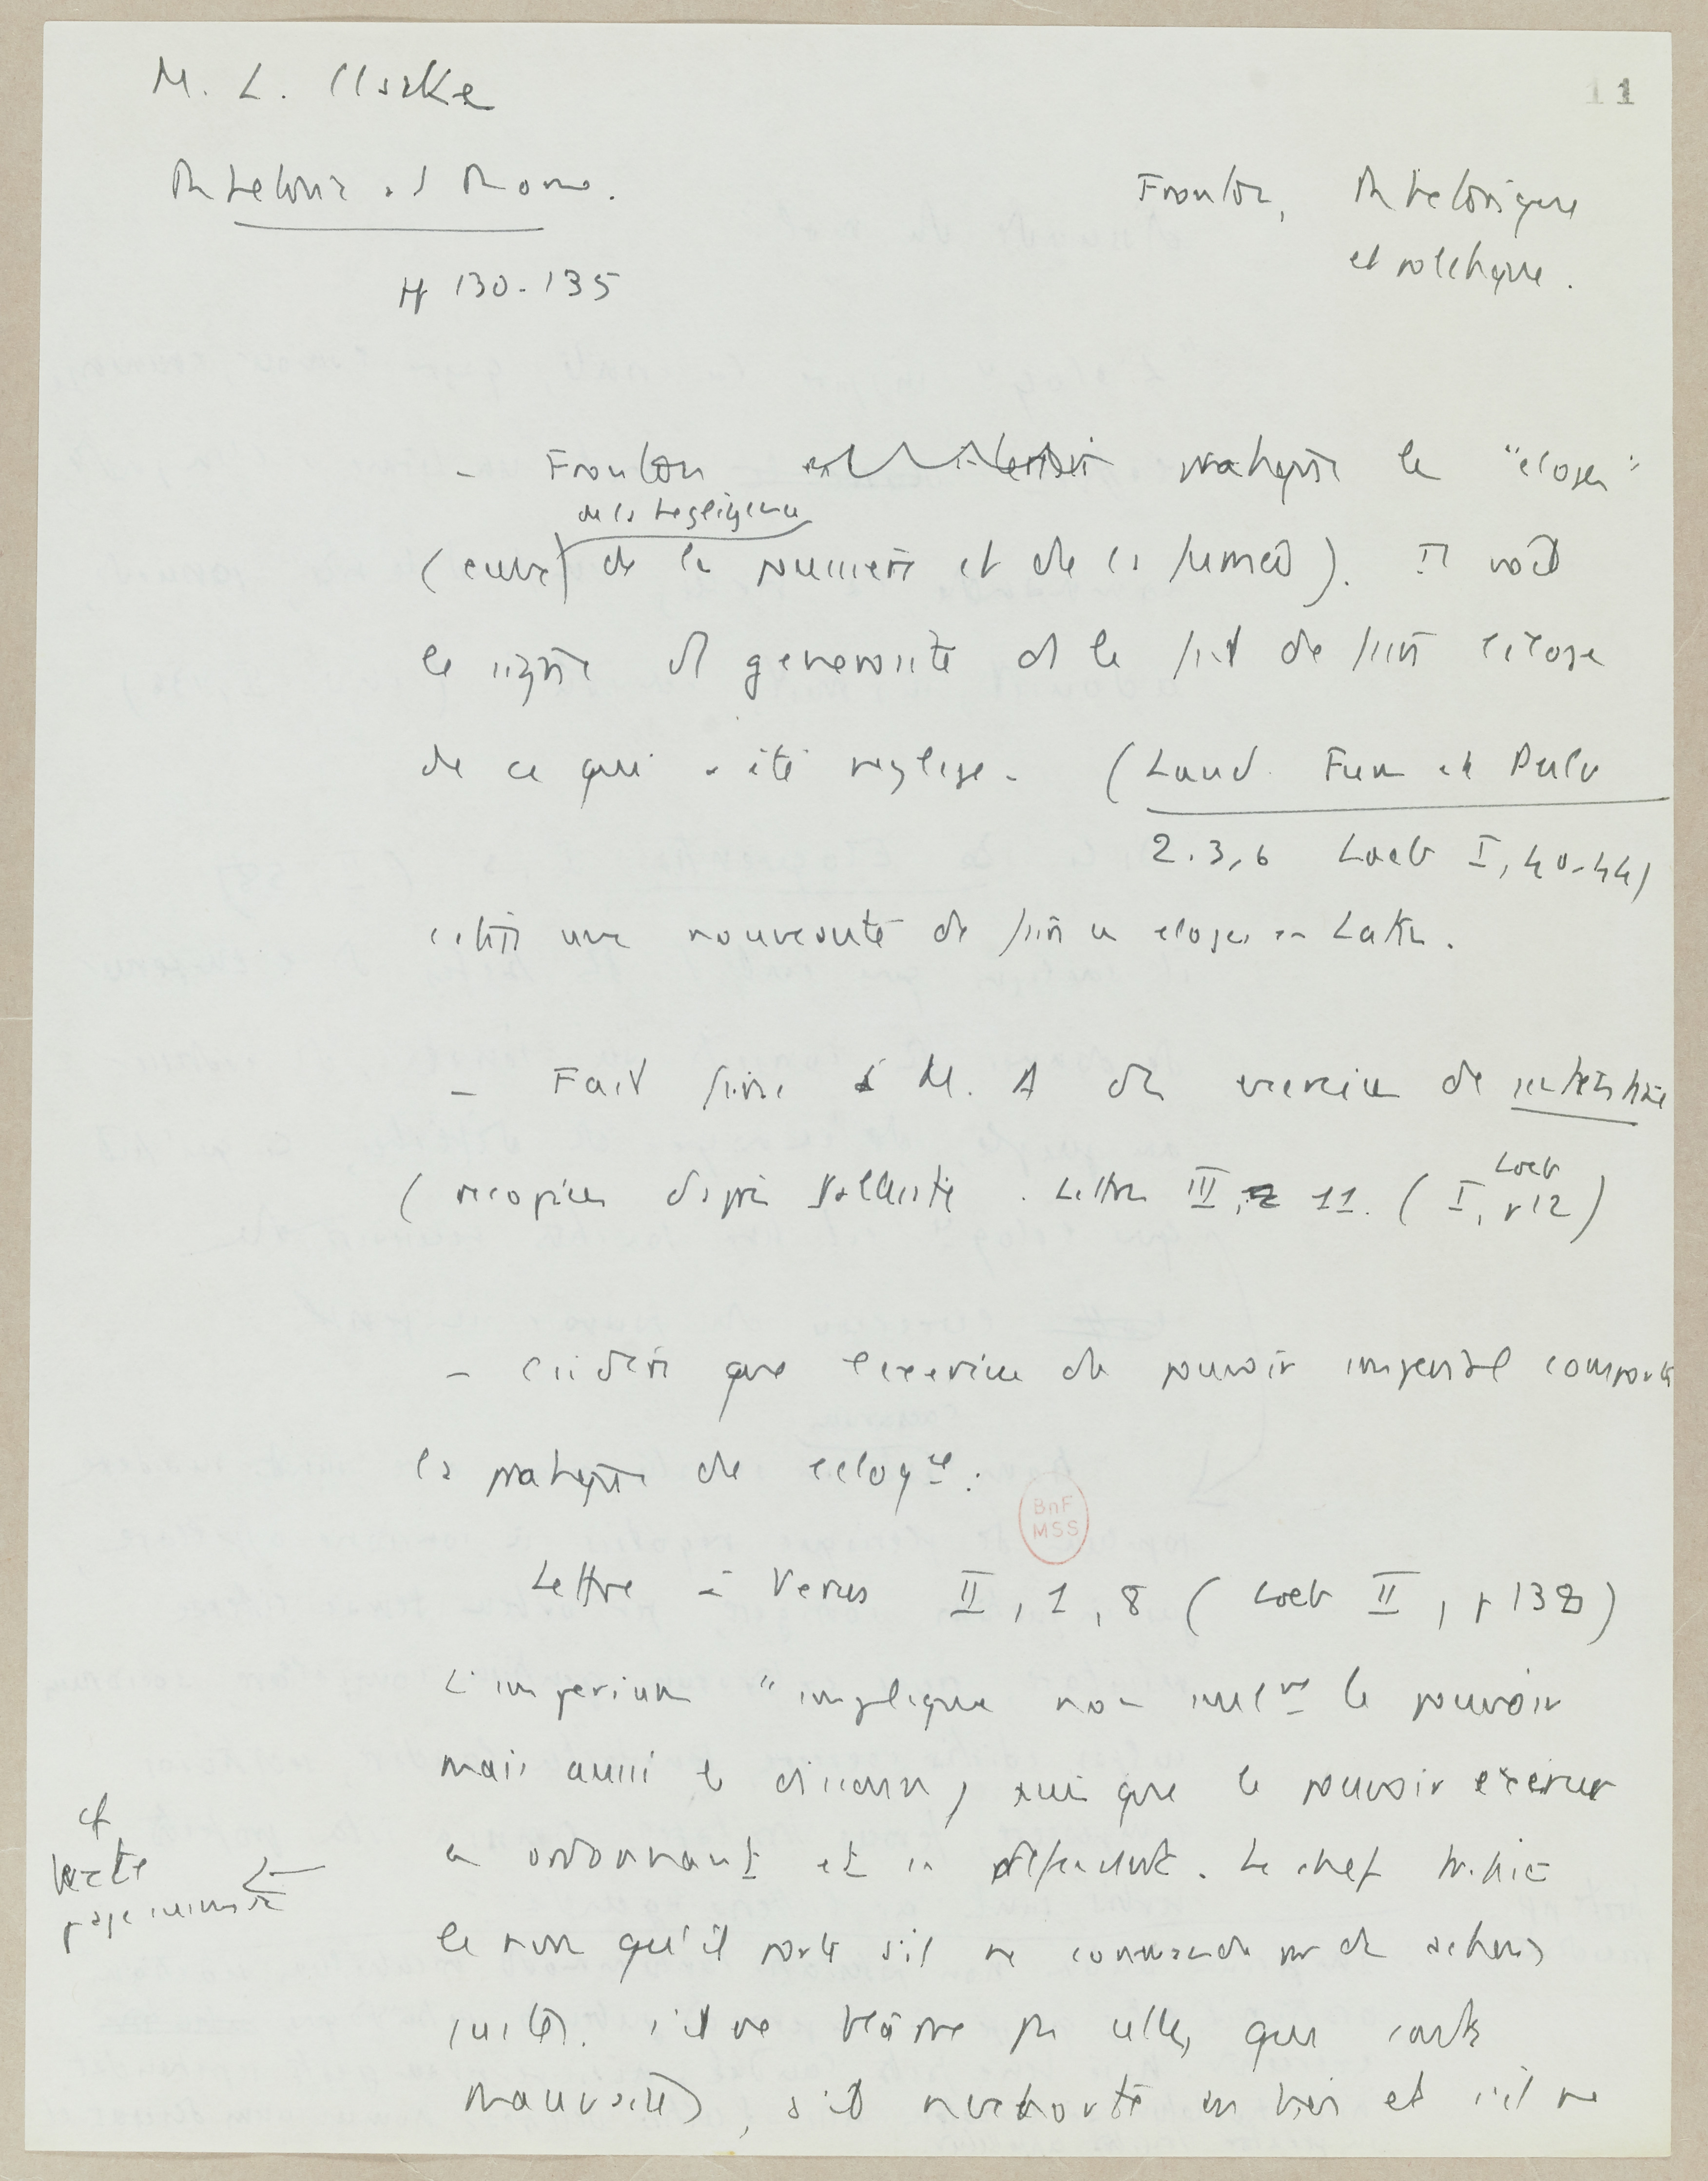 M. L. Clarke
11
Rhetoric at Rome.
Fronton, Rhétorique
et politique.
pp 130-135
- Fronton pratique le "éloges"
de la négligence
(entre de la poussière et de la fumée). Il voit
le signe de générosité ds le fait de faire l'éloge
de ce qui a été négligé. (Laud. Fum et Pulv
2.3,6 Loeb I, 40-44)
c'était une nouveauté de faire ces éloges en Latin.
- Fait faire à M. A des exercices de
(recopiées d'après Salluste. Lettre III, 11. (I, p12)
Loeb
- Considère que l'exercice du pouvoir impérial comporte
la pratique de l'éloqce :
Lettre à Verus II, 1, 8 (Loeb II, p 138)
L'imperium "implique non seulmt le pouvoir
mais aussi le discours, puisque le pouvoir s'exerce
en ordonnant et en défendant. Le chef
le nom qu'il porte s'il ne commande pas des actions
justes. s'il ne blâme pas celles qui sont
mauvaises, s'il n'exhorte au bien et s'il ne
cf
texte
page suivante
BnF
MSS